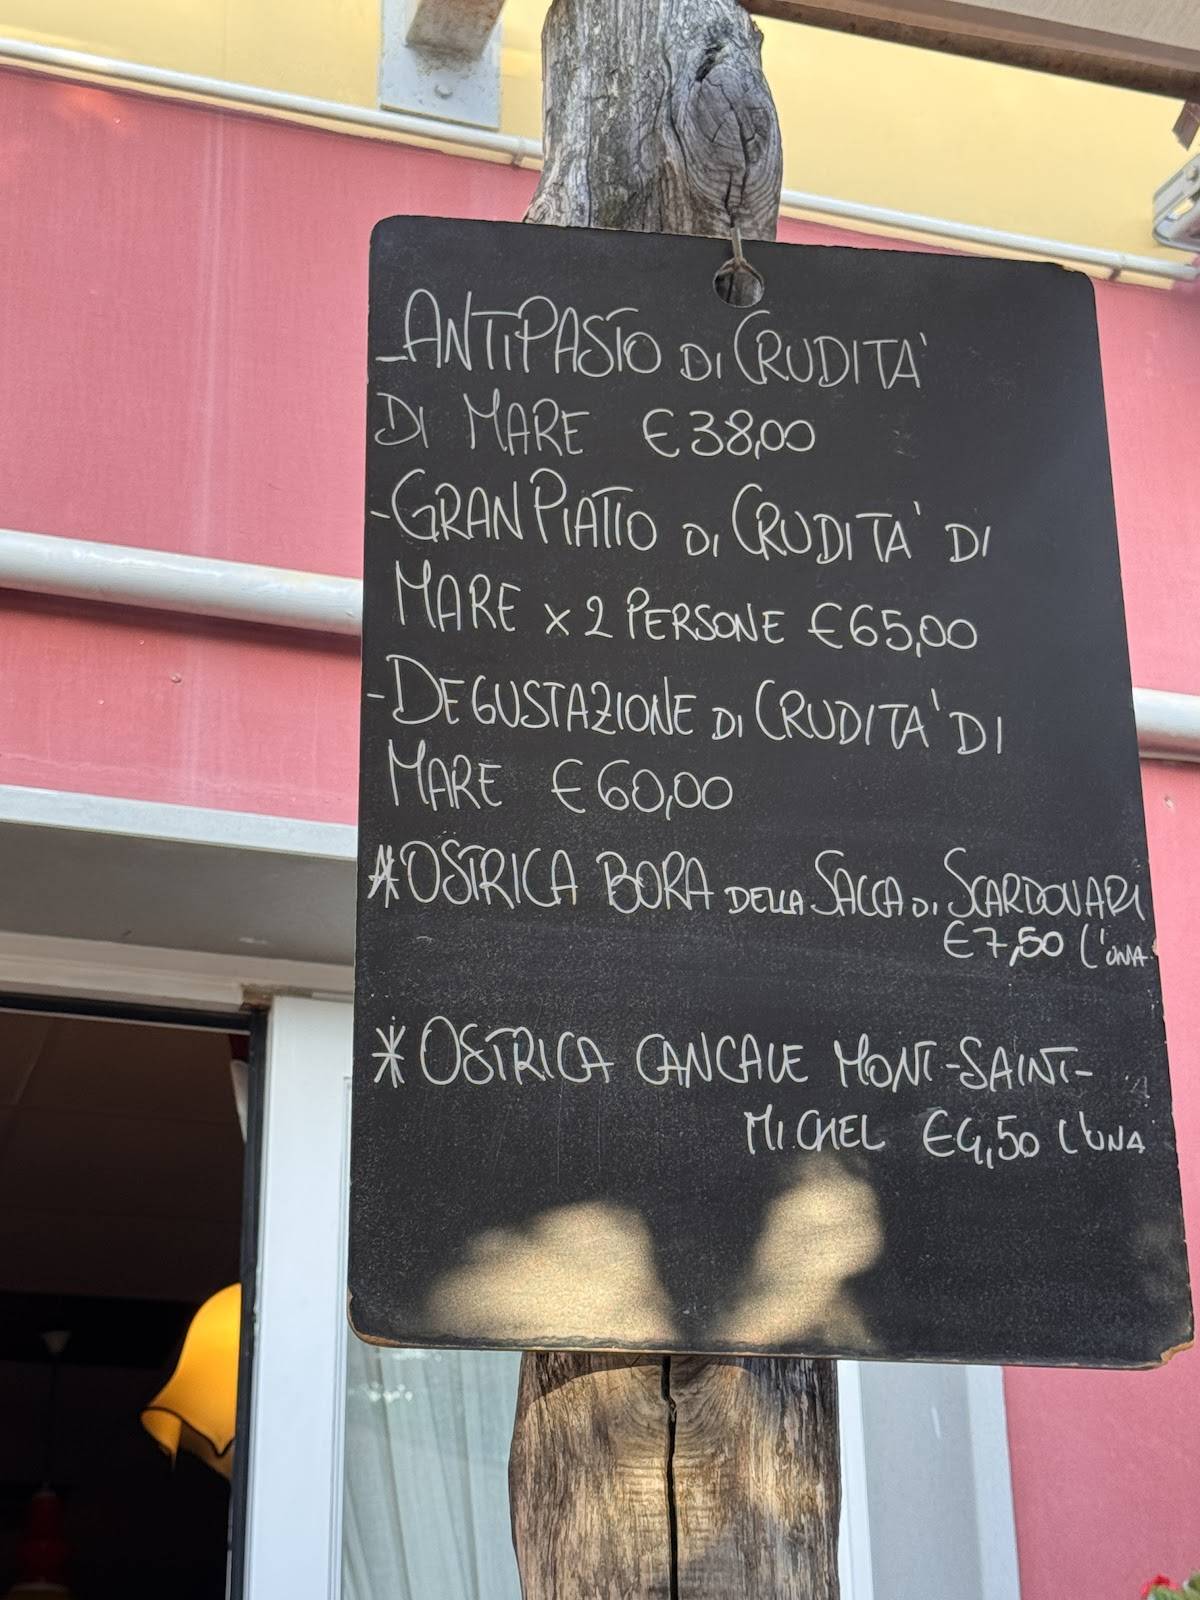 - ANTIPASTO DI CRUDITA'
DI MARE €38,00
- GRAN PIATTO DI CRUDITA' DI
MARE x 2 PERSONE €65,00
- DEGUSTAZIONE DI CRUDITA' DI
MARE €60,00
* OSTRICA BORA DELLA SACCA DI SCARDOVARI
€7,50 L'UNA
* OSTRICA CANCALE MONT-SAINT-
MICHEL €4,50 L'UNA